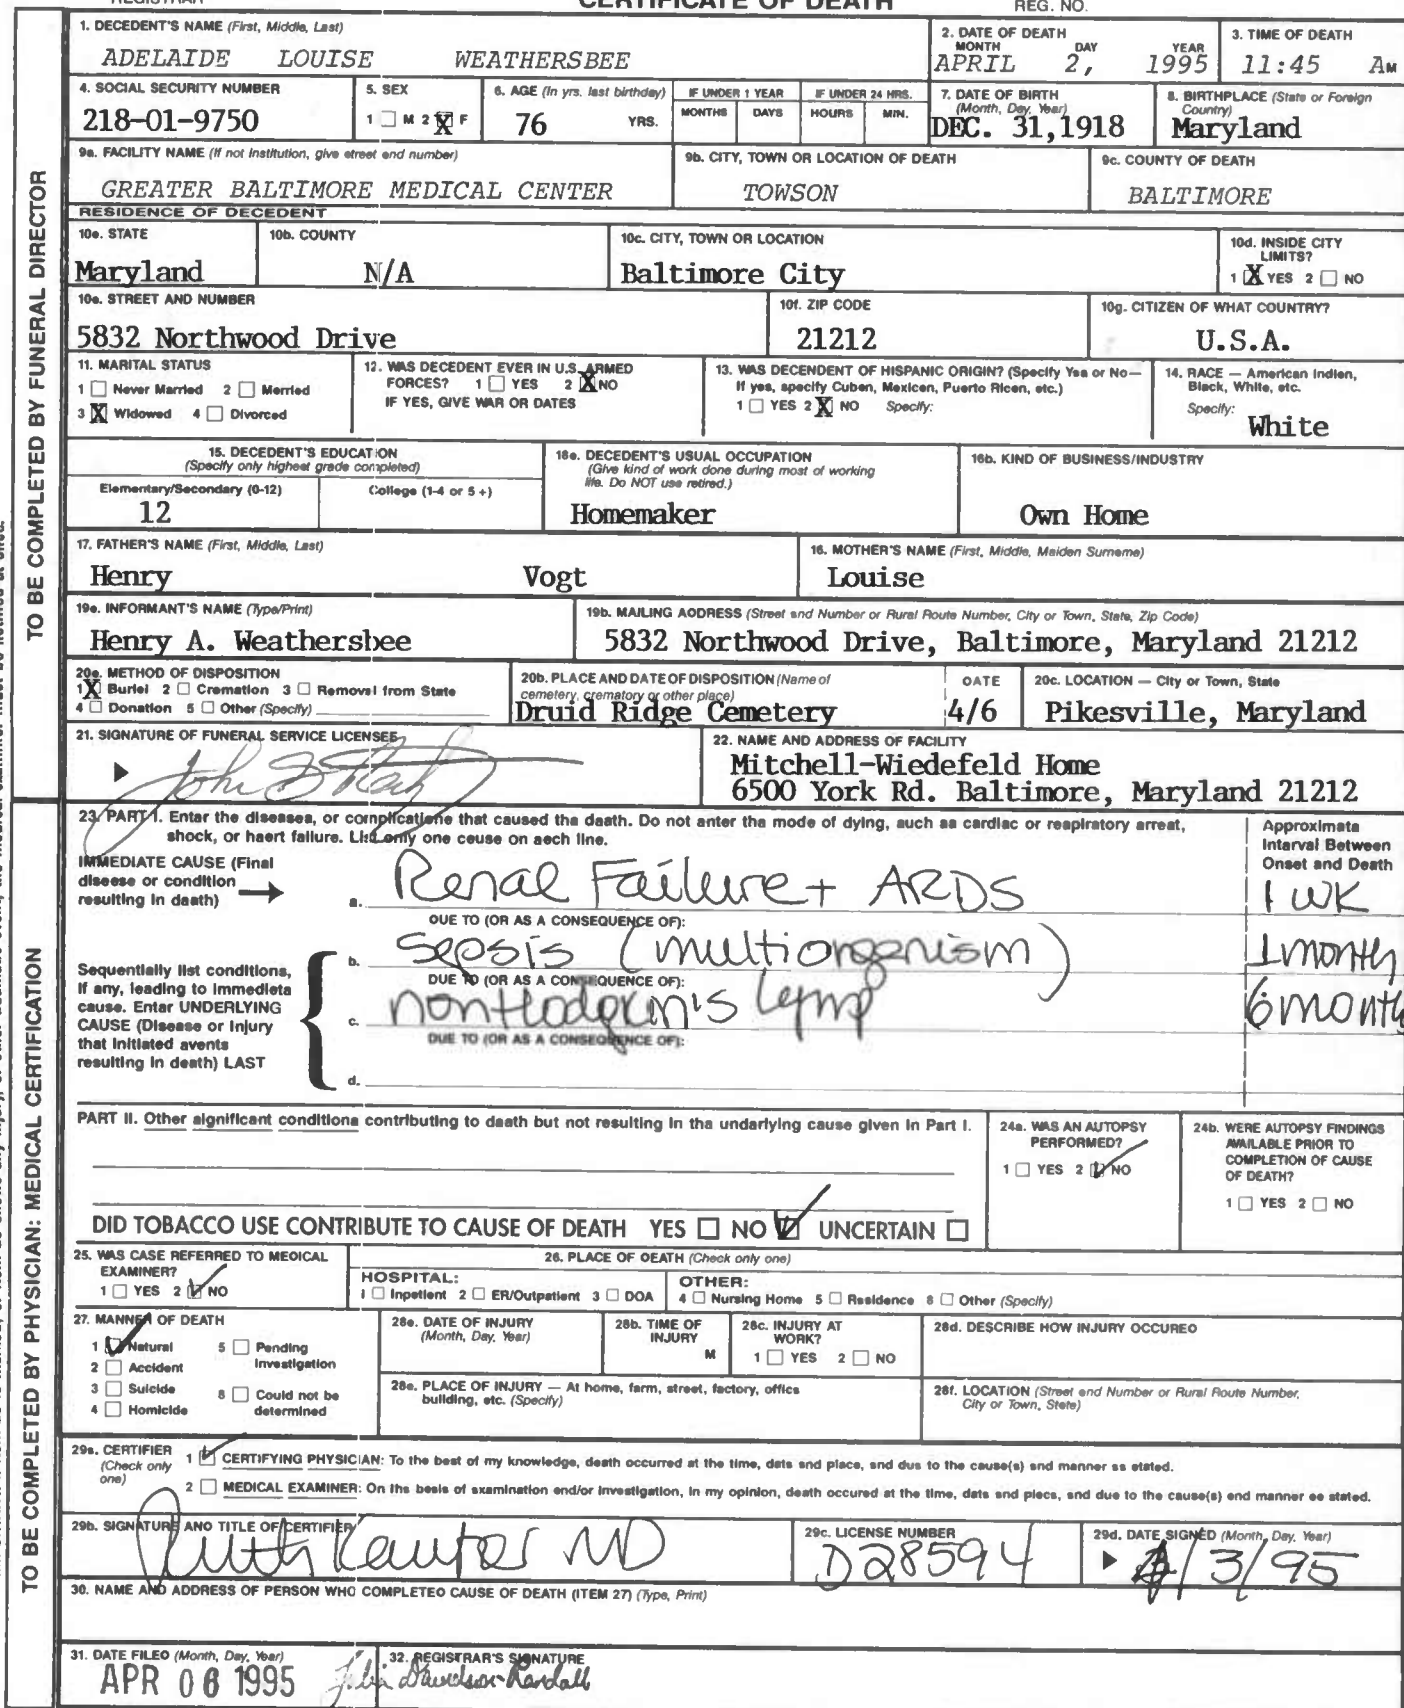 CERTIFICATE OF DEATH
REGISTRAR REG. NO.
TO BE COMPLETED BY FUNERAL DIRECTOR
1. DECEDENT'S NAME (First, Middle, Last)
ADELAIDE LOUISE WEATHERSBEE
2. DATE OF DEATH
MONTH DAY YEAR
APRIL 2, 1995
3. TIME OF DEATH
11:45 AM
4. SOCIAL SECURITY NUMBER
218-01-9750
5. SEX
1 ☐ M 2 ☒ F
6. AGE (In yrs. last birthday)
76 YRS.
IF UNDER 1 YEAR
MONTHS DAYS
IF UNDER 24 HRS.
HOURS MIN.
7. DATE OF BIRTH
(Month, Day, Year)
DEC. 31,1918
8. BIRTHPLACE (State or Foreign
Country)
Maryland
9a. FACILITY NAME (If not institution, give street and number)
GREATER BALTIMORE MEDICAL CENTER
9b. CITY, TOWN OR LOCATION OF DEATH
TOWSON
9c. COUNTY OF DEATH
BALTIMORE
RESIDENCE OF DECEDENT
10a. STATE
Maryland
10b. COUNTY
N/A
10c. CITY, TOWN OR LOCATION
Baltimore City
10d. INSIDE CITY
LIMITS?
1 ☒ YES 2 ☐ NO
10e. STREET AND NUMBER
5832 Northwood Drive
10f. ZIP CODE
21212
10g. CITIZEN OF WHAT COUNTRY?
U.S.A.
11. MARITAL STATUS
1 ☐ Never Married 2 ☐ Married
3 ☒ Widowed 4 ☐ Divorced
12. WAS DECEDENT EVER IN U.S. ARMED
FORCES? 1 ☐ YES 2 ☒ NO
IF YES, GIVE WAR OR DATES
13. WAS DECENDENT OF HISPANIC ORIGIN? (Specify Yes or No—
If yes, specify Cuban, Mexican, Puerto Rican, etc.)
1 ☐ YES 2 ☒ NO Specify:
14. RACE — American Indian,
Black, White, etc.
Specify:
White
15. DECEDENT'S EDUCATION
(Specify only highest grade completed)
Elementary/Secondary (0-12) College (1-4 or 5+)
12
16a. DECEDENT'S USUAL OCCUPATION
(Give kind of work done during most of working
life. Do NOT use retired.)
Homemaker
16b. KIND OF BUSINESS/INDUSTRY
Own Home
17. FATHER'S NAME (First, Middle, Last)
Henry Vogt
18. MOTHER'S NAME (First, Middle, Maiden Surname)
Louise
19a. INFORMANT'S NAME (Type/Print)
Henry A. Weathersbee
19b. MAILING ADDRESS (Street and Number or Rural Route Number, City or Town, State, Zip Code)
5832 Northwood Drive, Baltimore, Maryland 21212
20a. METHOD OF DISPOSITION
1 ☒ Burial 2 ☐ Cremation 3 ☐ Removal from State
4 ☐ Donation 5 ☐ Other (Specify)
20b. PLACE AND DATE OF DISPOSITION (Name of
cemetery, crematory or other place)
Druid Ridge Cemetery
DATE
4/6
20c. LOCATION — City or Town, State
Pikesville, Maryland
21. SIGNATURE OF FUNERAL SERVICE LICENSEE
John
22. NAME AND ADDRESS OF FACILITY
Mitchell-Wiedefeld Home
6500 York Rd. Baltimore, Maryland 21212
TO BE COMPLETED BY PHYSICIAN: MEDICAL CERTIFICATION
23. PART I. Enter the diseases, or complications that caused the death. Do not enter the mode of dying, such as cardiac or respiratory arrest,
shock, or heart failure. List only one cause on each line.
Approximate
Interval Between
Onset and Death
IMMEDIATE CAUSE (Final
disease or condition
resulting in death)
a. Renal Failure + ARDS 1 WK
DUE TO (OR AS A CONSEQUENCE OF):
Sequentially list conditions,
If any, leading to immediate
cause. Enter UNDERLYING
CAUSE (Disease or injury
that initiated events
resulting in death) LAST
b. Sepsis (multiorgenism) 1 month
DUE TO (OR AS A CONSEQUENCE OF):
c. non Hodgkin's Lymp 6 month
DUE TO (OR AS A CONSEQUENCE OF):
d.
PART II. Other significant conditions contributing to death but not resulting in the underlying cause given in Part I.
24a. WAS AN AUTOPSY
PERFORMED?
1 ☐ YES 2 ☑ NO
24b. WERE AUTOPSY FINDINGS
AVAILABLE PRIOR TO
COMPLETION OF CAUSE
OF DEATH?
1 ☐ YES 2 ☐ NO
DID TOBACCO USE CONTRIBUTE TO CAUSE OF DEATH YES ☐ NO ☑ UNCERTAIN ☐
25. WAS CASE REFERRED TO MEDICAL
EXAMINER?
1 ☐ YES 2 ☑ NO
26. PLACE OF DEATH (Check only one)
HOSPITAL:
1 ☐ Inpatient 2 ☐ ER/Outpatient 3 ☐ DOA
OTHER:
4 ☐ Nursing Home 5 ☐ Residence 6 ☐ Other (Specify)
27. MANNER OF DEATH
1 ☑ Natural 5 ☐ Pending
Investigation
2 ☐ Accident
3 ☐ Suicide 6 ☐ Could not be
determined
4 ☐ Homicide
28a. DATE OF INJURY
(Month, Day, Year)
28b. TIME OF
INJURY
M
28c. INJURY AT
WORK?
1 ☐ YES 2 ☐ NO
28d. DESCRIBE HOW INJURY OCCURED
28e. PLACE OF INJURY — At home, farm, street, factory, office
building, etc. (Specify)
28f. LOCATION (Street and Number or Rural Route Number,
City or Town, State)
29a. CERTIFIER
(Check only
one)
1 ☑ CERTIFYING PHYSICIAN: To the best of my knowledge, death occurred at the time, date and place, and due to the cause(s) and manner as stated.
2 ☐ MEDICAL EXAMINER: On the basis of examination and/or investigation, in my opinion, death occured at the time, date and place, and due to the cause(s) and manner as stated.
29b. SIGNATURE AND TITLE OF CERTIFIER
Ruth Kantor MD
29c. LICENSE NUMBER
D28594
29d. DATE SIGNED (Month, Day, Year)
4/3/95
30. NAME AND ADDRESS OF PERSON WHO COMPLETED CAUSE OF DEATH (ITEM 27) (Type, Print)
31. DATE FILED (Month, Day, Year)
APR 06 1995
32. REGISTRAR'S SIGNATURE
Julia Davidson-Randall